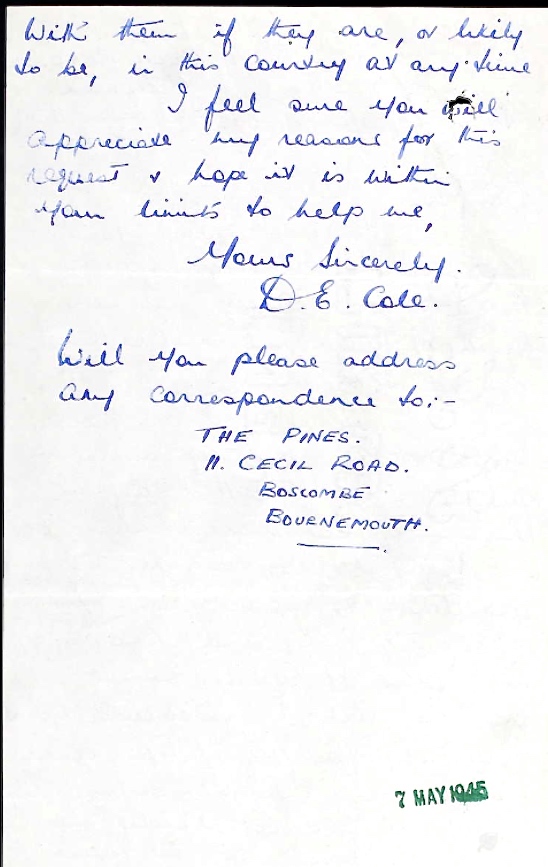 with them if they are, or likely
to be, in this country at any time
I feel sure you will
appreciate my reasons for this
request & hope it is within
your limits to help me,
Yours Sincerely.
D. E. Cole.
Will you please address
any correspondence to:-
THE PINES.
11. CECIL ROAD.
BOSCOMBE
BOURNEMOUTH.
7 MAY 1945